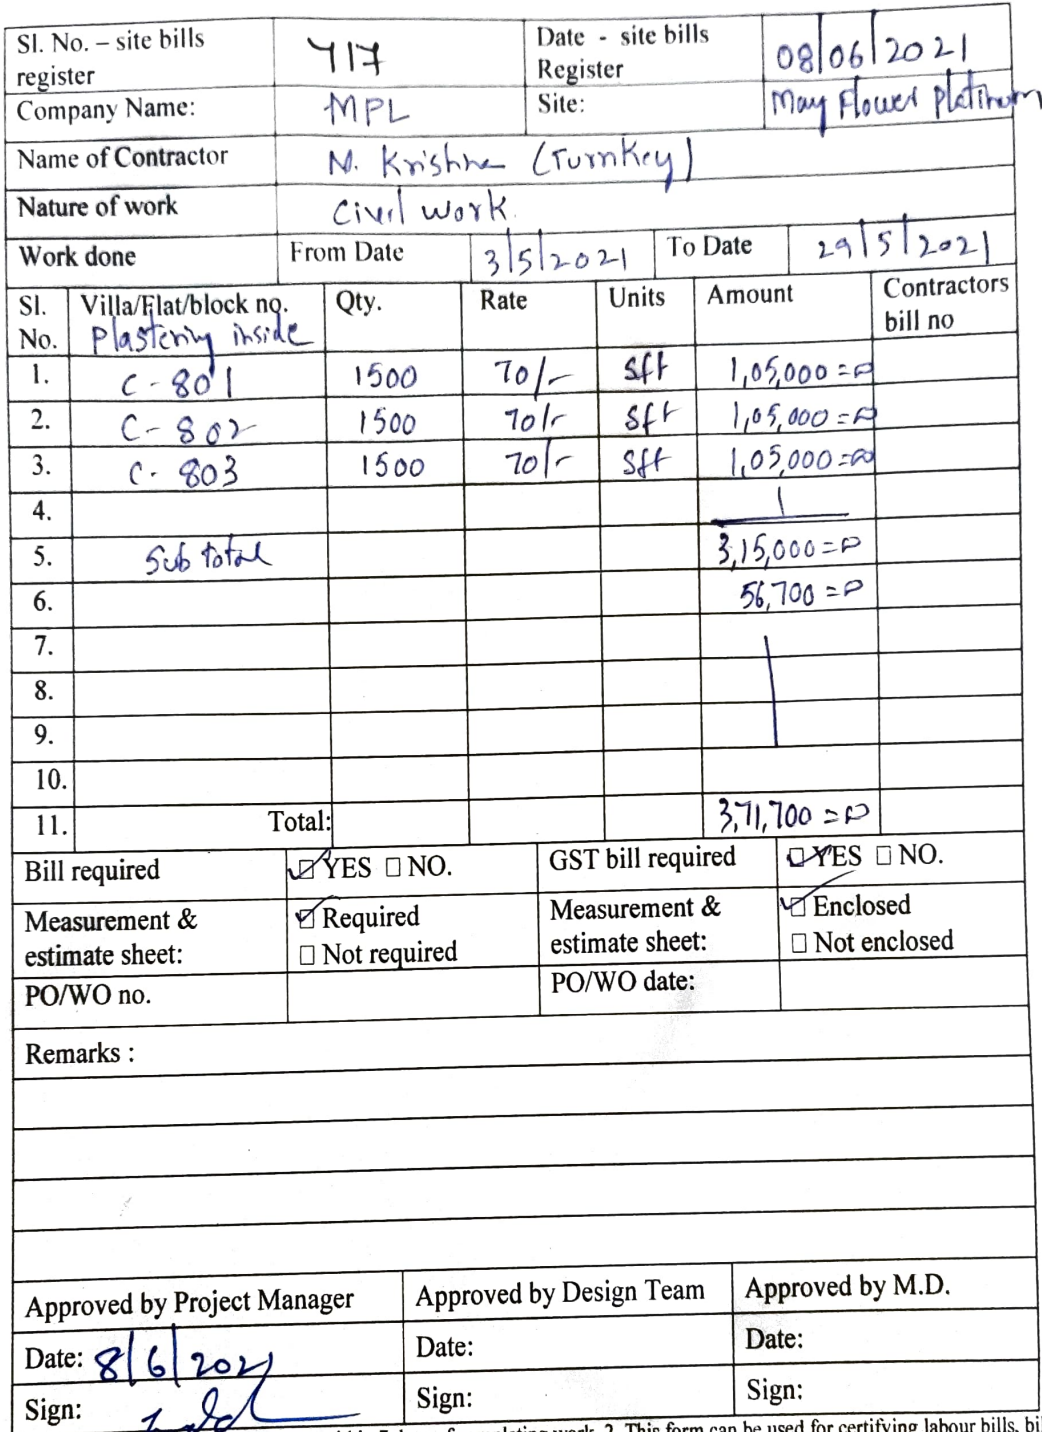 Sl. No. – site bills register 417 Date - site bills Register 08/06/2021
Company Name: MPL Site: May Flower Platinum
Name of Contractor N. Krishna (Turnkey)
Nature of work Civil work.
Work done From Date 3/5/2021 To Date 29/5/2021
Sl. No. Villa/Flat/block no. Qty. Rate Units Amount Contractors bill no
Plastering inside
1. C-801 1500 70/- sft 1,05,000=00
2. C-802 1500 70/- sft 1,05,000=00
3. C-803 1500 70/- sft 1,05,000=00
4.
5. Sub total 3,15,000=00
6. 56,700=00
7.
8.
9.
10.
11. Total: 3,71,700=00
Bill required ☑ YES ☐ NO. GST bill required ☑ YES ☐ NO.
Measurement & estimate sheet: ☑ Required ☐ Not required Measurement & estimate sheet: ☑ Enclosed ☐ Not enclosed
PO/WO no. PO/WO date:
Remarks :
Approved by Project Manager Approved by Design Team Approved by M.D.
Date: 8/6/2021 Date: Date:
Sign: Sign: Sign:
2. This form can be used for certifying labour bills,